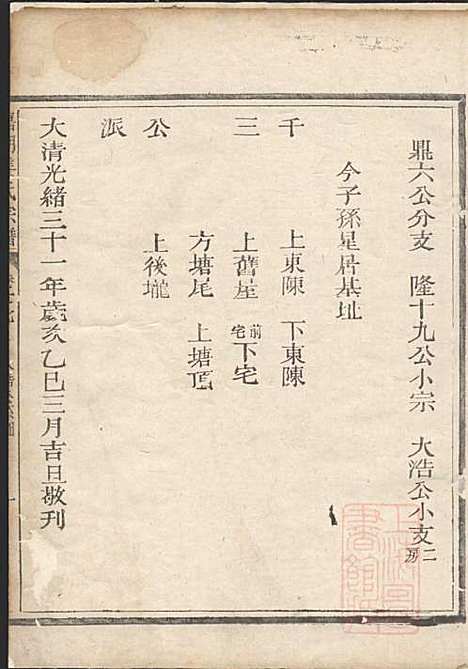 鼎六公分支　隆十九公小宗　大浩公小支二房
今子孫星居基址
千　上東陳　下東陳
三　上舊屋　前宅下宅
方塘尾　上塘頂
公　上後壠
派
大清光緒三十一年歲次乙巳三月吉旦敬刊